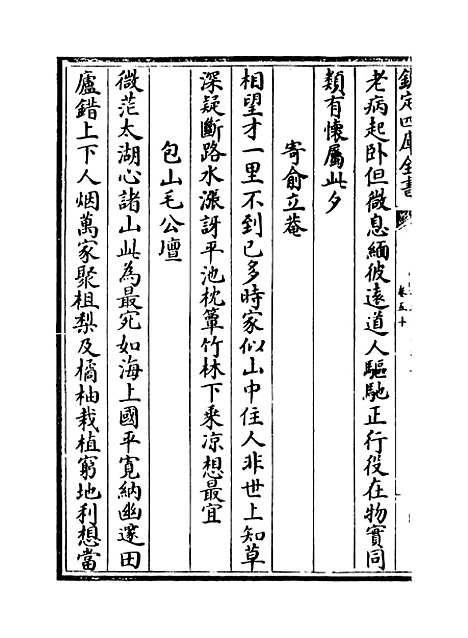 欽定四庫全書
卷五十
老病起卧但微息緬彼遠道人驅馳正行役在物實同
類有懷屬此夕
寄俞立菴
相望才一里不到已多時家似山中住人非世上知草
深疑斷路水漲訝平池枕簟竹林下乘凉想最宜
包山毛公壇
微茫太湖心諸山此為最宛如海上國平寛納幽邃田
廬錯上下人烟萬家聚柤梨及橘柚栽植窮地利想當